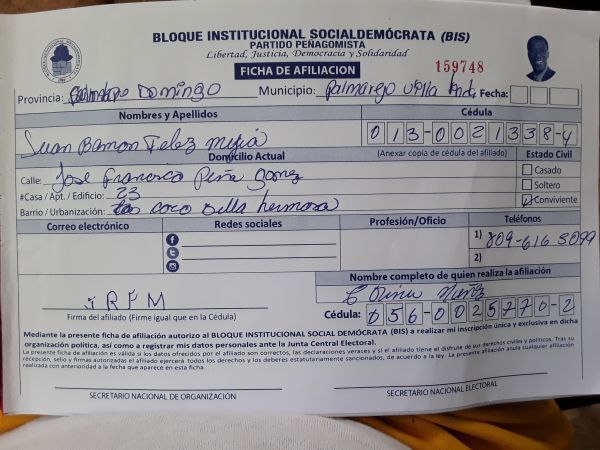 BLOQUE INSTITUCIONAL SOCIALDEMÓCRATA (BIS)
PARTIDO PEÑAGOMISTA
Libertad, Justicia, Democracia y Solidaridad
FICHA DE AFILIACION
159748
Provincia: Domingo Municipio: Palmarejo Villa Fecha:
Nombres y Apellidos Cédula
Juan Ramon Telez Mejia 013-0021338-4
Domicilio Actual (Anexar copia de cédula del afiliado) Estado Civil
Calle: Jose Francisco Peña Gomez Casado
#Casa / Apt. / Edificio: 23 Soltero
Barrio / Urbanización: coco Bella hermosa Conviviente
Correo electrónico Redes sociales Profesión/Oficio Teléfonos
1) 809-616 5099
2)
Nombre completo de quien realiza la afiliación
JRFM
Firma del afiliado (Firme igual que en la Cédula) Cédula: 056-0025770-2
Mediante la presente ficha de afiliación autorizo al BLOQUE INSTITUCIONAL SOCIAL DEMÓCRATA (BIS) a realizar mi inscripción única y exclusiva en dicha
organización política, así como a registrar mis datos personales ante la Junta Central Electoral.
La presente ficha de afiliación es válida si los datos ofrecidos por el afiliado son correctos, las declaraciones veraces y si el afiliado tiene el disfrute de sus derechos civiles y políticos. Tras su
recepción, sello y firmas autorizadas el afiliado ejercerá todos los derechos y los deberes estatutariamente sancionados, de acuerdo a la ley. La presente afiliación anula cualquier afiliación
realizada con anterioridad a la fecha que aparece en esta ficha.
SECRETARIO NACIONAL DE ORGANIZACIÓN SECRETARIO NACIONAL ELECTORAL